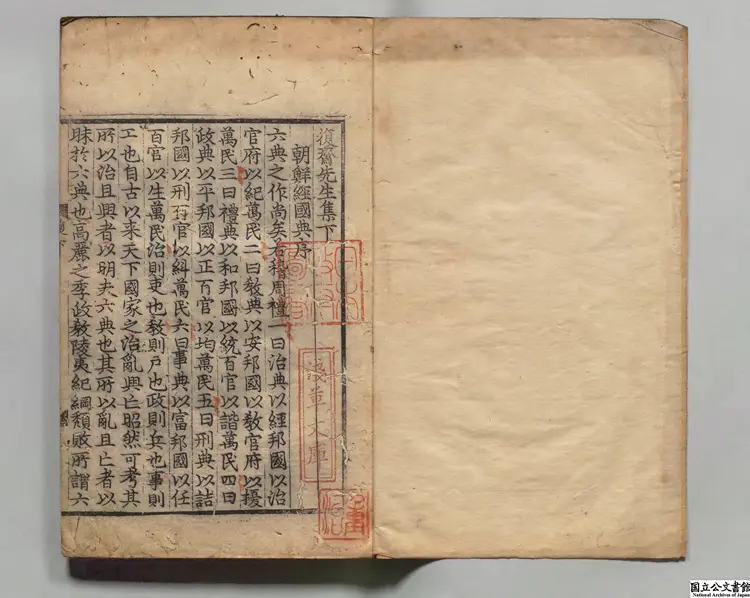 復齋先生集下
朝鮮經國典序
六典之作尚矣右稽周禮一曰治典以經邦國以治
官府以紀萬民二曰敎典以安邦國以敎官府以擾
萬民三曰禮典以和邦國以統百官以諧萬民四曰
政典以平邦國以正百官以均萬民五曰刑典以詰
邦國以刑百官以糾萬民六曰事典以富邦國以任
百官以生萬民治則吏也敎則戶也政則兵也事則
工也自古以來天下國家之治亂興亡昭然可考其
所以治且興者以明夫六典也其所以亂且亡者以
昧於六典也高麗之季政敎陵夷紀綱頹敗所謂六
淺草文庫
国立公文書館
National Archives of Japan